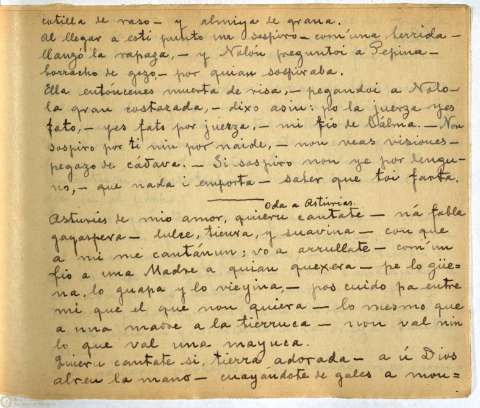 cotilla de raso – y almiya de grana.
Al llegar a esti puntu un sospiro – com'una herrida –
llanzó la rapaza, – y Nolón preguntoi a Pepina –
borracho de gozo – por quian sospiraba.
Ella entóncenes muerta de risa, – pegandoi a Nolo –
la gran costazada, – dixo asin: po la juerza yes
fato, – yes fato por juerza, – mi fio de Dálma. – Non
sospiro por ti nin por naide, – non veas visiones –
pegazo de cádava. – Si sospiro non ye por dengu-
no, – que nada i emporta – saber que toi farta.
Oda a Asturias.
Asturies de mio amor, quieru cantate – ná fabla
gayaspera – dulce, tienra, y suavina – con que
a mi me cantánun; vo a arrullate – com'un
fio a una Madre a quian quexera – pe lo güe-
na, lo guapa y lo vieyina, – pos cuido pa entre
mi que el que non quiera – lo mesmo que
a una madre a la tierruca – non val nin
lo que val una mayuca.
Quieru cantate si, tierra adorada – a ú Dios
abreu la mano – cuayándote de gales a mou=